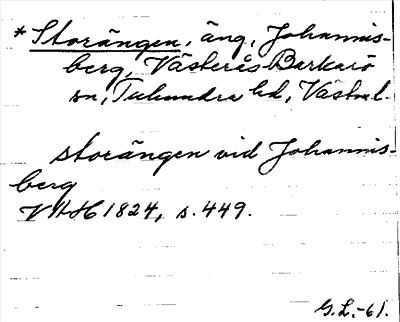 * Storängen, äng, Johannis-
berg, Västerås-Barkarö
sn, Tuhundra hd, Västml.
storängen vid Johannis-
berg
VHAH 1824, s. 449.
G.L.-61.